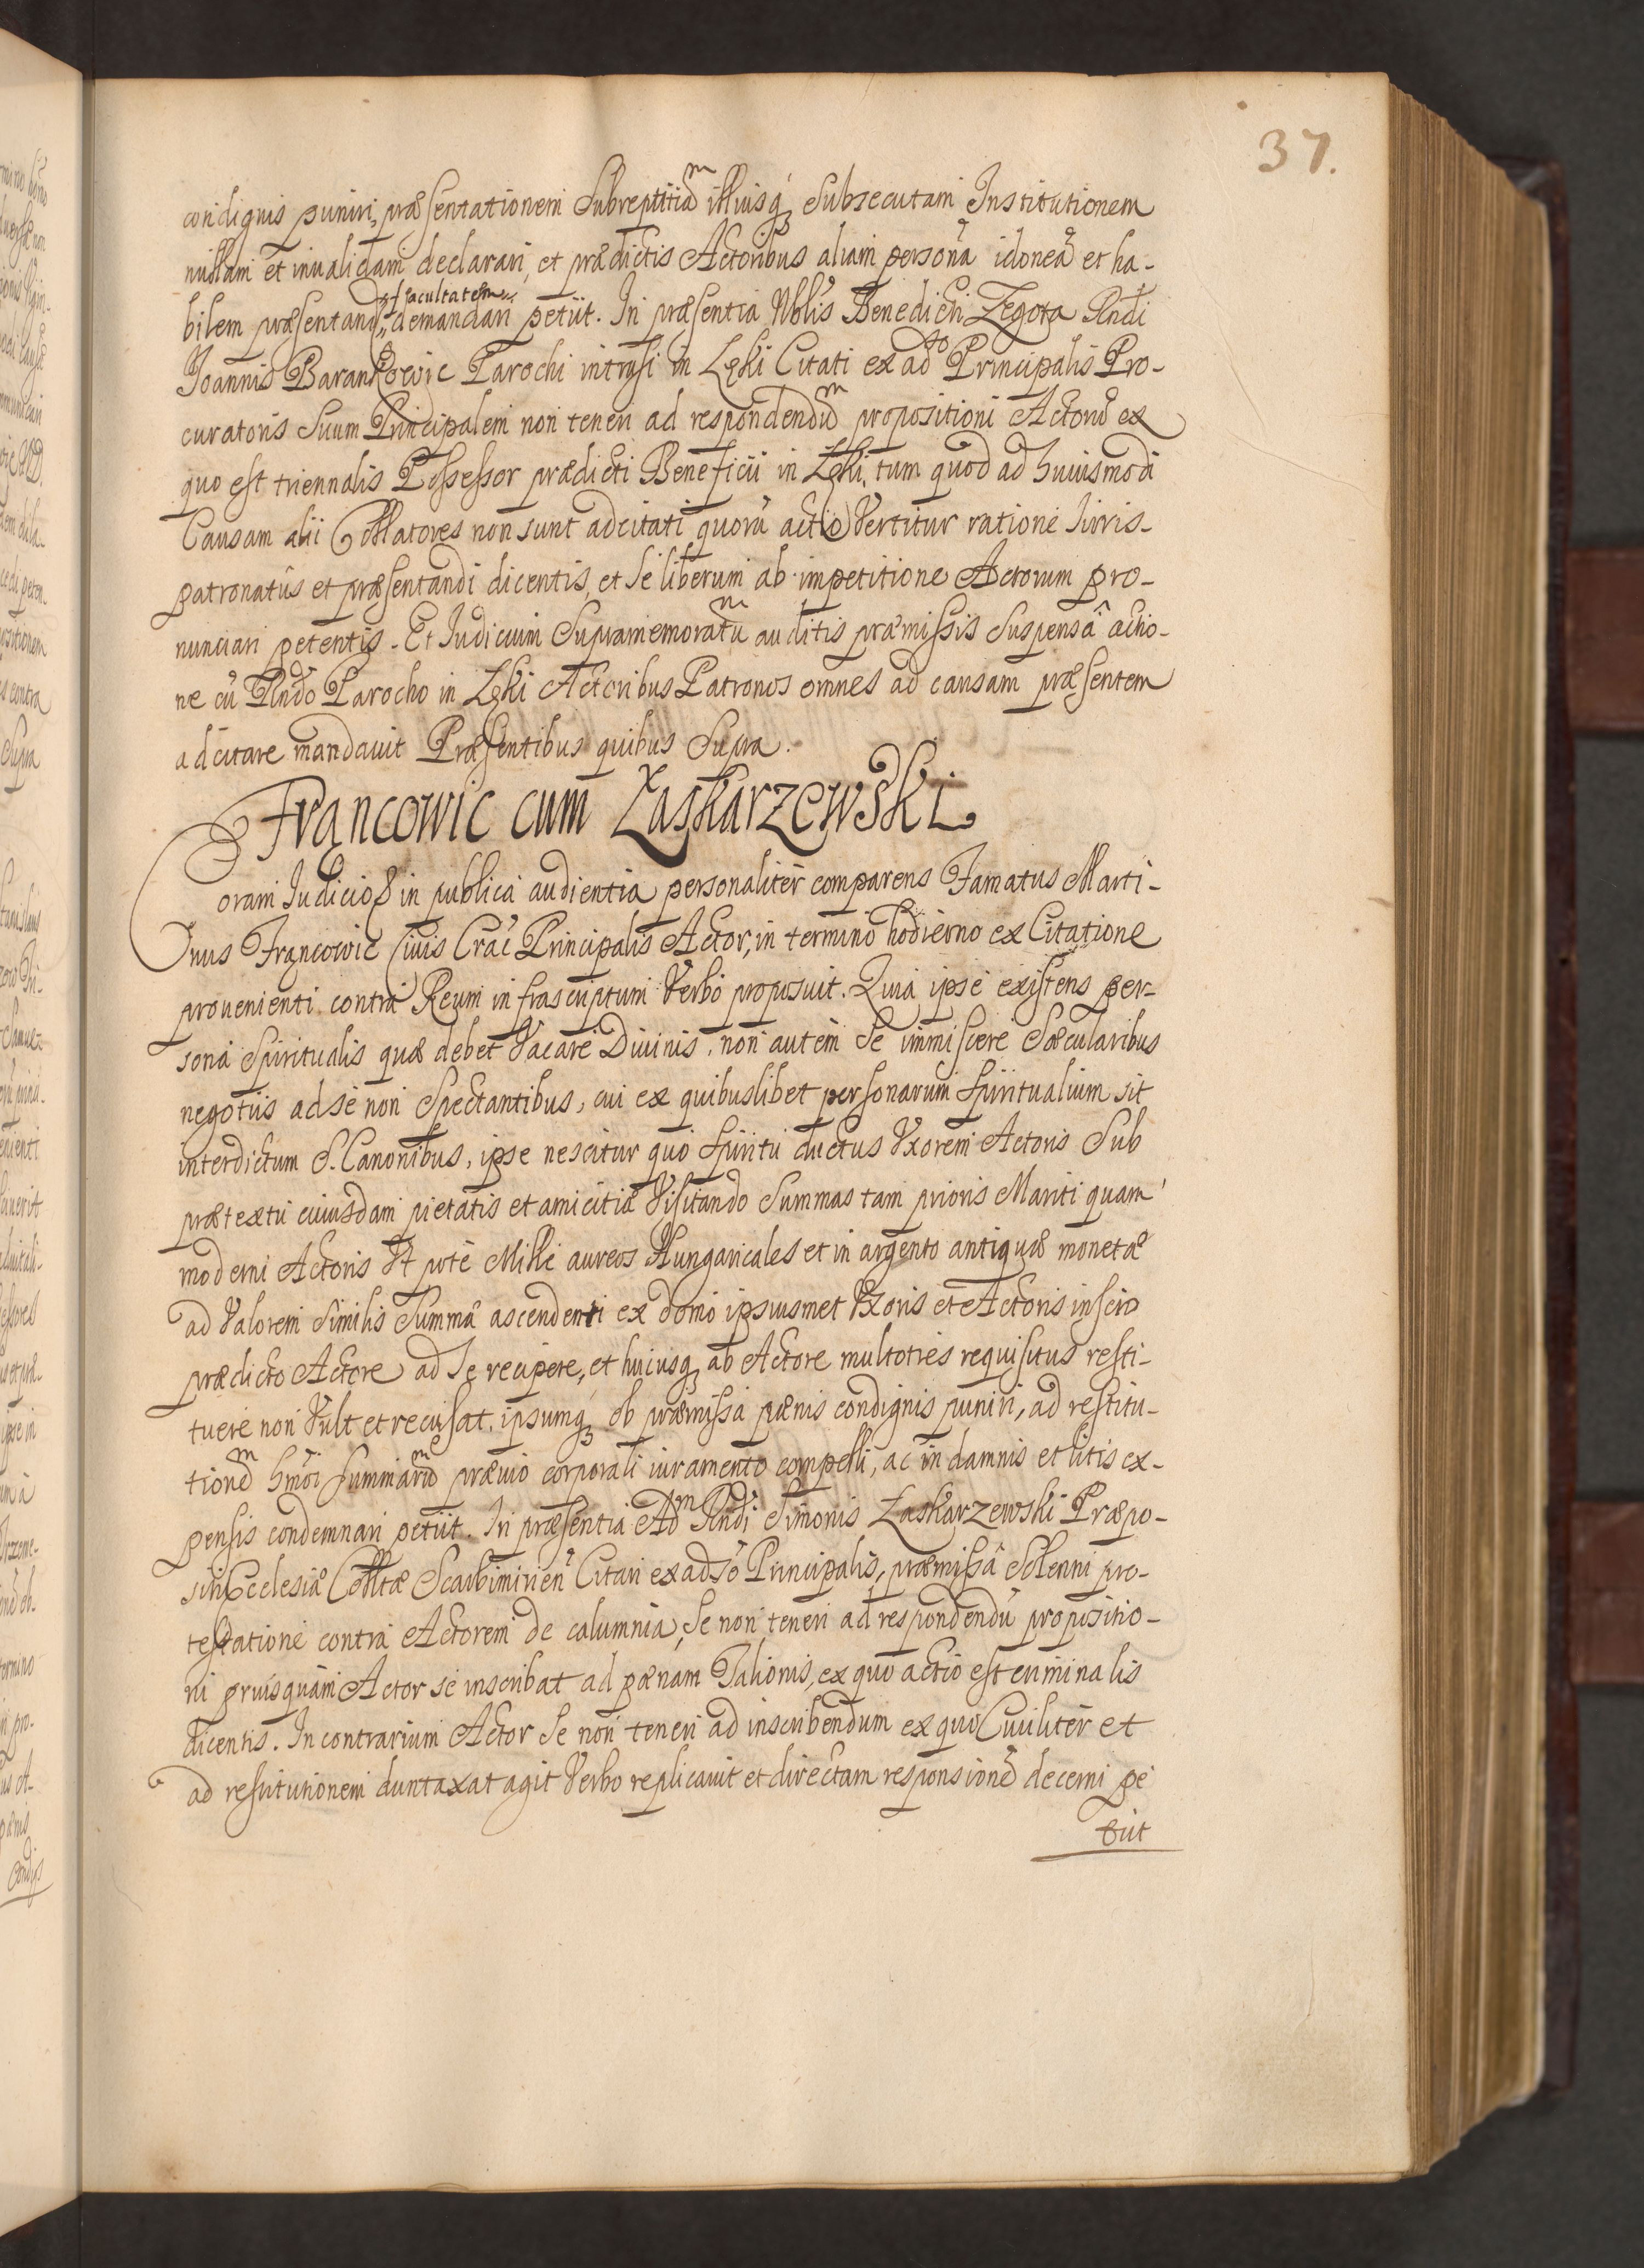 37.
condignis puniri, præsentationem Subreptitiã illiusq; subsecutam Institutionem
nullam et inualidam declarari, et prædictis Actoribus aliam personã idoneã et ha-
bilem præsentandi facultatem demandari petiit. In præsentia Nblis Benedicti Zegota Rndi
Joannis Barankowic Parochi intrusi in Lęki Citati ex adto Principalis Pro-
curatoris Suum Principalem non teneri ad respondendũ propositioni Actorũ ex
quo est triennalis Possessor prædicti Beneficii in Lęki, tum quod ad huiusmodi
Causam alii Collatores non sunt adcitati quorũ actio Vertitur ratione Iuris-
patronatûs et præsentandi dicentis, et Se liberum ab impetitione Actorum pro-
nunciari petentis. Et Iudicium Supramemoratũ auditis præmissis Suspensâ actio-
ne cũ Rndo Parocho in Lęki Actoribus Patronos omnes ad causam præsentem
adcitare mandauit Præsentibus quibus Supra.
Frąncowic cum Łaskarzewski
Coram Iudicio & in publica audientia personaliter comparens Famatus Marti-
nus Frąncowic Ciuis Crac Principalis Actor, in termino hodierno ex Citatione
prouenienti contra Reum infrascriptum Verbo proposuit. Quia ipse existens per-
sona Spiritualis quæ debet Vacare Diuinis, non autem Se immiscere Sæcularibus
negotiis ad se non Spectantibus, cui ex quibuslibet personarum spiritualium sit
interdictum S. Canonibus, ipse nescitur quo spiritu ductus Vxorem Actoris Sub
prætextu cuiusdam pietatis et amicitiæ Visitando Summas tam prioris Mariti quam
moderni Actoris Vt pote Mille aureos Hungaricales et in argento antiquæ monetæ
ad Valorem Similis Summæ ascendenti ex domo ipsiusmet Vxoris et Actoris inscio
prædicto Actore ad Se recipere, et huiusq; ab Actore multoties requisitus resti-
tuere non Vult et recusat, ipsumq; ob præmissa pænis condignis puniri, ad restitu-
tionẽ hmõi summarũ præuio corporali iuramento compelli, ac in damnis et litis ex-
pensis condemnari petiit. In præsentia Adm Rndi Simonis Łaskarzewski Præpo-
siti Ecclesiæ Colltæ Scarbimirien Citati ex adso Principalis, præmissâ Solenni pro-
testatione contra Actorem de calumnia, Se non teneri ad respondendũ propositio-
ni priusquam Actor se inscribat ad pænam Talionis, ex quo actio est criminalis
dicentis. In contrarium Actor Se non teneri ad inscribendum ex quo Ciuiliter et
ad restitutionem duntaxat agit Verbo replicauit et directam responsionẽ decerni pe
tiit